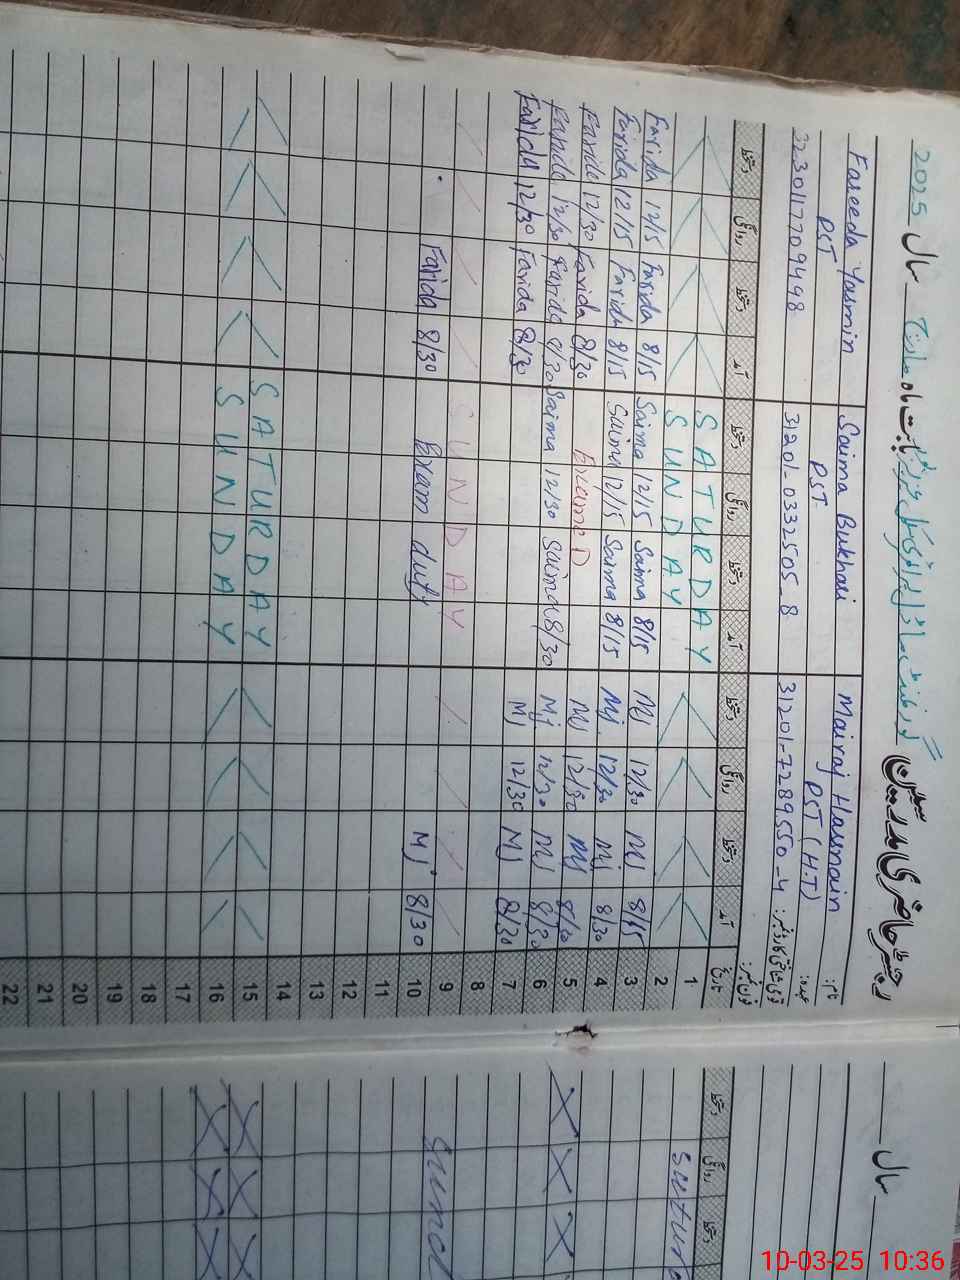 رجسٹر حاضری مدرسین
مارچ
سال 2025
نام:
Mairaj Hassnain
Saima Bukhari
Fareeda Yasmin
عہدہ:
PST (H.T)
PST
PST
قومی شناختی کارڈ نمبر:
31201-7289550-4
31201-0332505-8
فون نمبر:
تاریخ
آمد دستخط روانگی دستخط آمد دستخط روانگی دستخط آمد دستخط روانگی دستخط
1 SATURDAY
2 SUNDAY
3 8/15 Mj 12/30 Mj 8/15 Saima 12/15 Saima 8/15 Farida 12/15 Farida
4 8/30 Mj 12/30 Mj 8/15 Saima 12/15 Saima 8/15 Farida 12/15 Farida
5 8/30 Mj 12/30 Mj 8/30 Farida 12/30 Faride
6 8/30 Mj 12/30 Mj 8/30 Saima 12/30 Saima 8/30 Faride 12/30 Faride
7 8/30 Mj 12/30 Mj 8/30 Farida 12/30 Farida
8
9 SUNDAY
10 8/30 Mj Exam duty 8/30 Farida
11
12
13
14
15 SATURDAY
16 SUNDAY
17
18
19
20
21
22
سال
دستخط روانگی دستخط
10-03-25 10:36